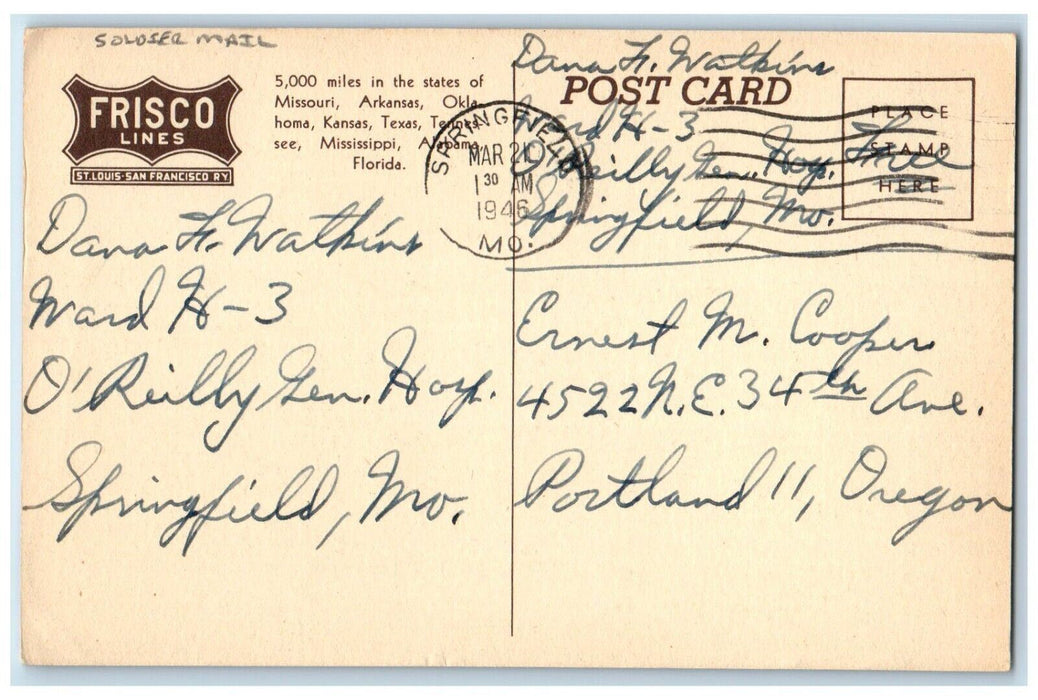 SOLDIER MAIL
FRISCO
LINES
ST. LOUIS-SAN FRANCISCO RY.
5,000 miles in the states of
Missouri, Arkansas, Okla-
homa, Kansas, Texas, Tennes-
see, Mississippi, Alabama,
Florida.
Dana F. Watkins
Ward H-3
O'Reilly Gen. Hosp.
Springfield, Mo.
SPRINGFIELD
MAR 21
1 30 AM
1946
MO.
Dana F. Watkins
POST CARD
Ward H-3
O'Reilly Gen. Hosp. Free
Springfield, Mo.
PLACE
STAMP
HERE
Ernest M. Cooper
4522 N.E. 34th Ave.
Portland 11, Oregon